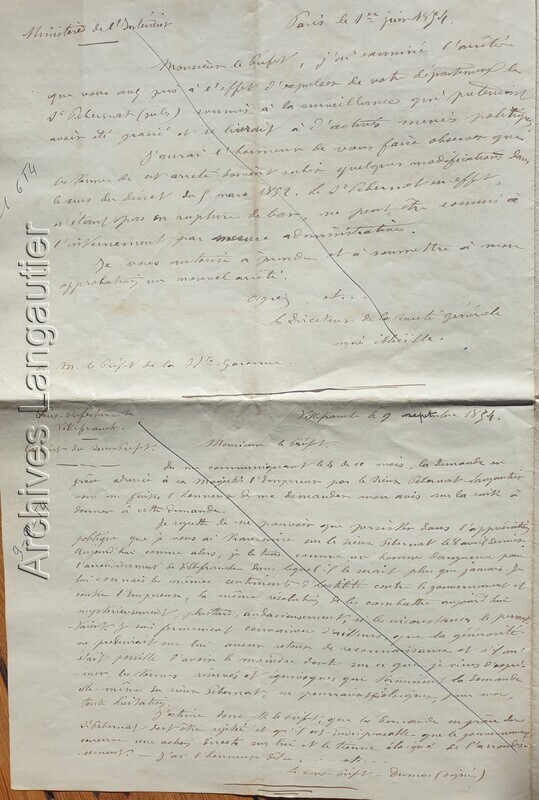 Ministère de l'Intérieur
Paris le 1er juin 1854.
Monsieur le Préfet, j'ai examiné l'arrêté
que vous avez pris à l'effet d'expulser de votre département le
Sr Pébernat (Jules) soumis à la surveillance qui prétendant
avoir été gracié et se livrait à d'actives menées politiques
J'aurai l'honneur de vous faire observer que
les termes de cet arrêté doivent subir quelques modifications dans
le sens du décret du 5 mars 1852. Le Sr Pébernat en effet,
n'étant pas en rupture de ban, ne peut être commis à
l'internement par mesure administrative.
Je vous autorise à prendre et à soumettre à mon
approbation un nouvel arrêté.
Agréez etc..
Le Directeur de la sûreté générale
signé
M. le Préfet de la Hte Garonne
Sous-Préfecture de
Villefranche.
Villefranche le 9 septembre 1854.
Monsieur le Préfet.
En me communiquant le 4 de ce mois, la demande en
grâce adressée à sa Majesté l'Empereur par le Sieur Pébernat Langautier
vous me faites l'honneur de me demander mon avis sur la suite à
donner à cette demande.
Je regrette de ne pouvoir que persister dans l'appréciation
politique que je vous ai transmise sur le Sieur Pébernat le 8 avril dernier.
Aujourd'hui comme alors, je le tiens comme un homme dangereux pour
l'arrondissement de Villefranche dans lequel il le serait plus que jamais. Je
lui connais les mêmes sentiments d'hostilité contre le gouvernement et
contre l'Empereur, la même résolution de les combattre aujourd'hui
mystérieusement, plus tard, audacieusement, si les circonstances le permet-
taient. Je suis fermement convaincu d'ailleurs que la générosité
ne produirait sur lui aucun retour de reconnaissance et s'il m'
était possible d'avoir le moindre doute sur ce que je viens d'expri-
mer, les termes réservés et équivoques qui terminent la demande
elle-même du sieur Pébernat, ne pourraient laisser, pour moi,
toute hésitation.
J'estime donc M. le Préfet, que la demande en grâce du
Sr Pébernat doit être rejetée et qu'il est indispensable que le gouvernement
conserve une action directe sur lui et le tienne éloigné de l'arrondis-
sement. J'ai l'honneur d'être etc.
Le sous-préfet - Dumas (signé)
Archives Langautier